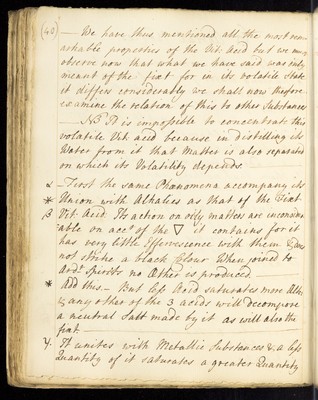 (40) — We have thus mentioned all the most rem-
arkable properties of the Vit. Acid but we may
observe now that what we have said was only
meant of the fixt for in its volatile State
it differs considerably we shall now therefore
examine the relation of this to other Substances
— NB It is impossible to concentrate this
volatile Vit. acid because in distilling its
Water from it that Matter is also separated
on which its Volatility depends.
α — First the same Phænomena accompany its
* Union with Alkalies as that of the Fixt
β Vit. Acid. Its action on oily matters are inconsider-
able on acct of the ▽ it contains for it
has very little Effervescence with them & does
not strike a black Colour When joined to
Ardt Spirits no Æther is produced
* Add this. — But less Acid saturates more Alkali
& any other of the 3 acids will decompose
a neutral Salt made by it as will also the
fixt
4. It unites with Metallic Substances & a less
Quantity of it saturates a greater Quantity